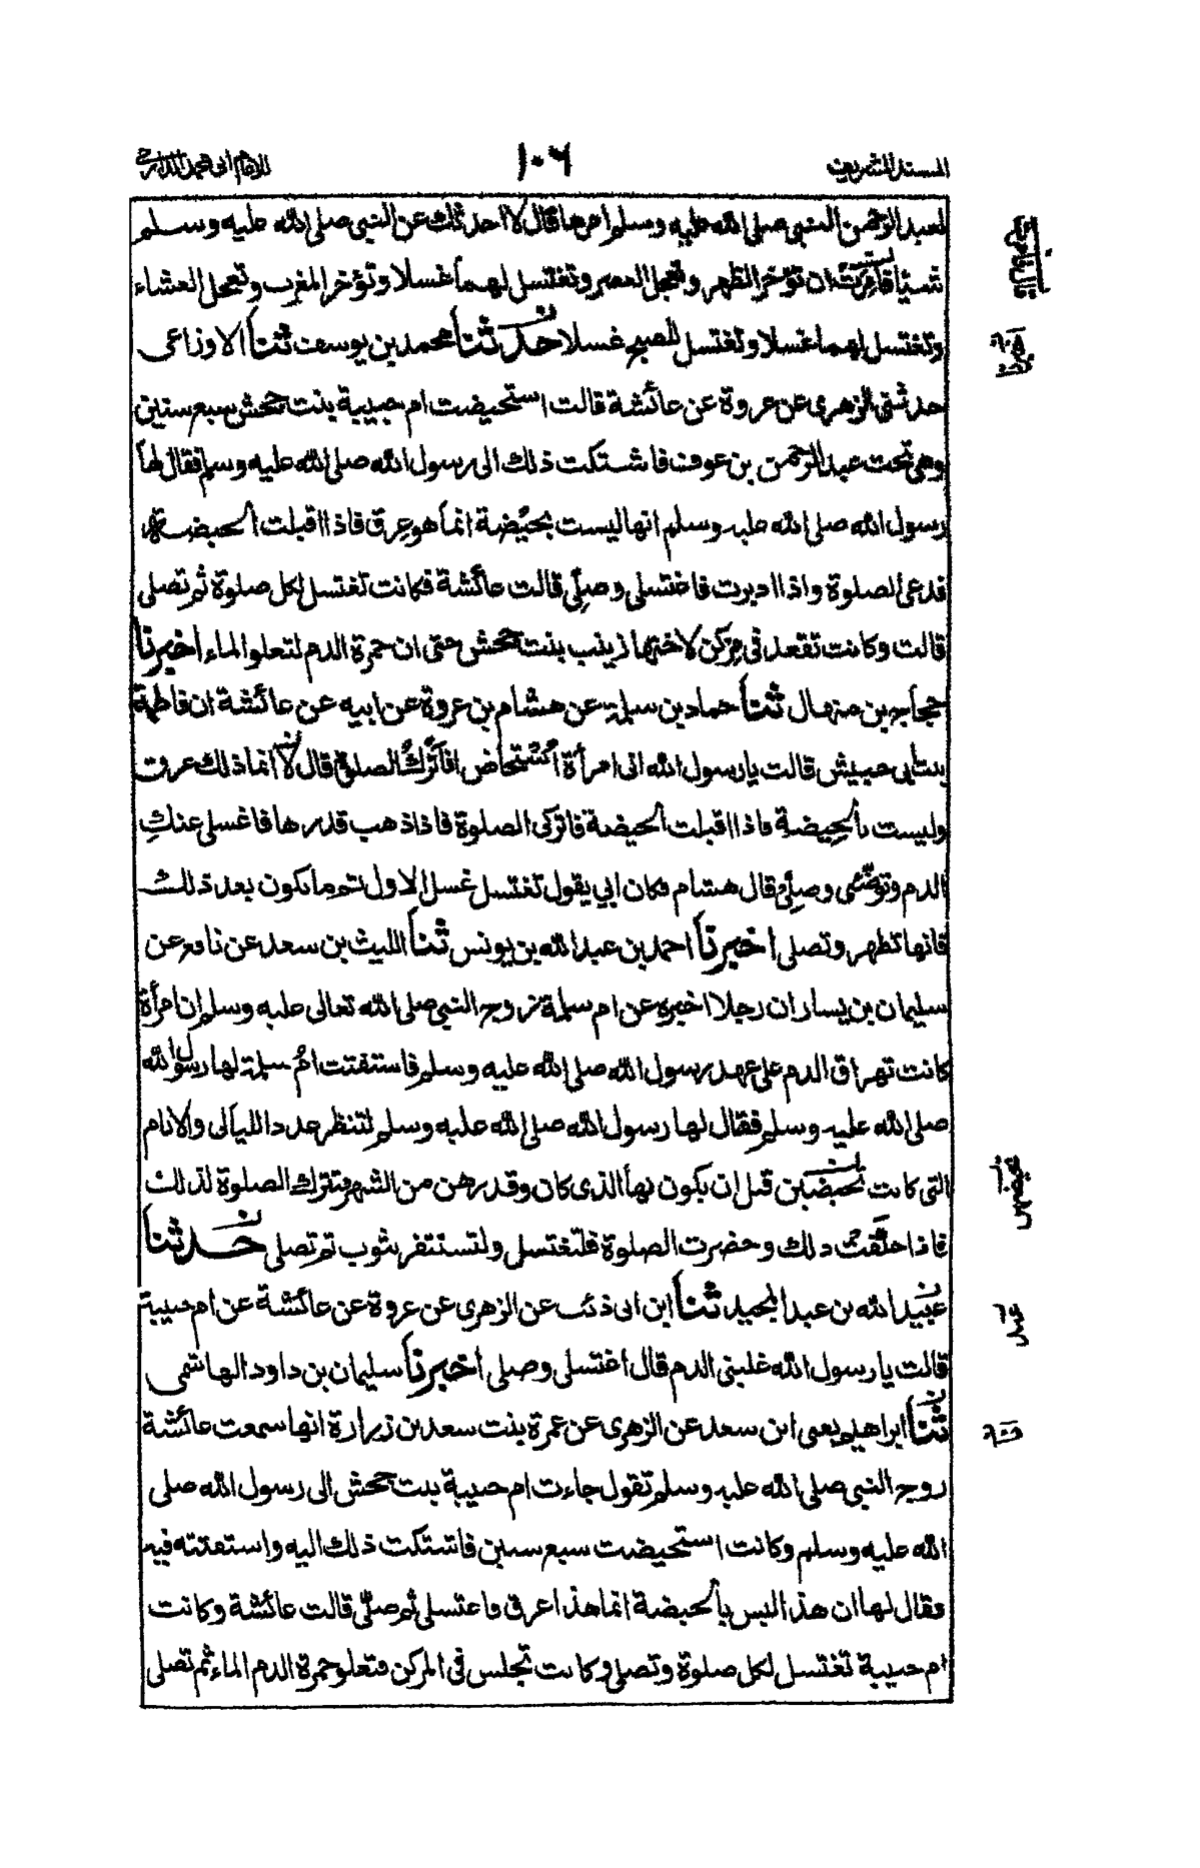 المسند الشريف
١٠٦
للامام ابى محمد الدارمى
لعبد الرحمن النبى صلى الله عليه وسلم امرها قال لا احدثك عن النبى صلى الله عليه وسلم
شيئا فامرت ان تؤخر الظهر وتعجل العصر وتغتسل لهما غسلا وتؤخر المغرب وتعجل العشاء
وتغتسل لهما غسلا وتغتسل للصبح غسلا حدثنا محمد بن يوسف ثنا الاوزاعى
حدثنى الزهرى عن عروة عن عائشة قالت استحيضت ام حبيبة بنت جحش سبع سنين
وهى تحت عبد الرحمن بن عوف فاشتكت ذلك الى رسول الله صلى الله عليه وسلم فقال لها
رسول الله صلى الله عليه وسلم انها ليست بحيضة انما هو عرق فاذا اقبلت الحيضة
فدعى الصلوة واذا ادبرت فاغتسلى وصلى قالت عائشة فكانت تغتسل لكل صلوة ثم تصلى
قالت وكانت تقعد فى مركن لاختها زينب بنت جحش حتى ان حمرة الدم لتعلو الماء اخبرنا
حجاج بن منهال ثنا حماد بن سلمة عن هشام بن عروة عن ابيه عن عائشة ان فاطمة
بنت ابى حبيش قالت يا رسول الله انى امرأة أستحاض افأترك الصلوة قال لا انما ذلك عرق
وليست بالحيضة فاذا اقبلت الحيضة فاتركى الصلوة فاذا ذهب قدرها فاغسلى عنك
الدم وتوضئى وصلى قال هشام فكان ابى يقول تغتسل غسل الاول ثم ما يكون بعد ذلك
فانها تطهر وتصلى اخبرنا احمد بن عبد الله بن يونس ثنا الليث بن سعد عن نافع عن
سليمان بن يسار ان رجلا اخبره عن ام سلمة زوج النبى صلى الله تعالى عليه وسلم ان امرأة
كانت تهراق الدم على عهد رسول الله صلى الله عليه وسلم فاستفتت ام سلمة لها رسول الله
صلى الله عليه وسلم فقال لها رسول الله صلى الله عليه وسلم لتنظر عدد الليالى والايام
التى كانت تحيضهن قبل ان يكون بها الذى كان وقدرهن من الشهر فتترك الصلوة لذلك
فاذا خلفت ذلك وحضرت الصلوة فلتغتسل ولتستثفر بثوب ثم تصلى حدثنا
عبيد الله بن عبد المجيد ثنا ابن ابى ذئب عن الزهرى عن عروة عن عائشة عن ام حبيبة
قالت يا رسول الله غلبنى الدم قال اغتسلى وصلى اخبرنا سليمان بن داود الهاشمى
ثنا ابراهيم يعنى ابن سعد عن الزهرى عن عمرة بنت سعد بن زرارة انها سمعت عائشة
زوج النبى صلى الله عليه وسلم تقول جاءت ام حبيبة بنت جحش الى رسول الله صلى
الله عليه وسلم وكانت استحيضت سبع سنين فاشتكت ذلك اليه واستفتته فيه
فقال لها ان هذا ليس بالحيضة انما هذا عرق فاغتسلى ثم صلى قالت عائشة وكانت
ام حبيبة تغتسل لكل صلوة وتصلى وكانت تجلس فى المركن فتعلو حمرة الدم الماء ثم تصلى